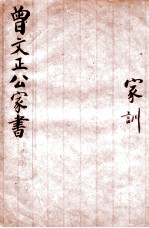 家訓
曾文正公家書